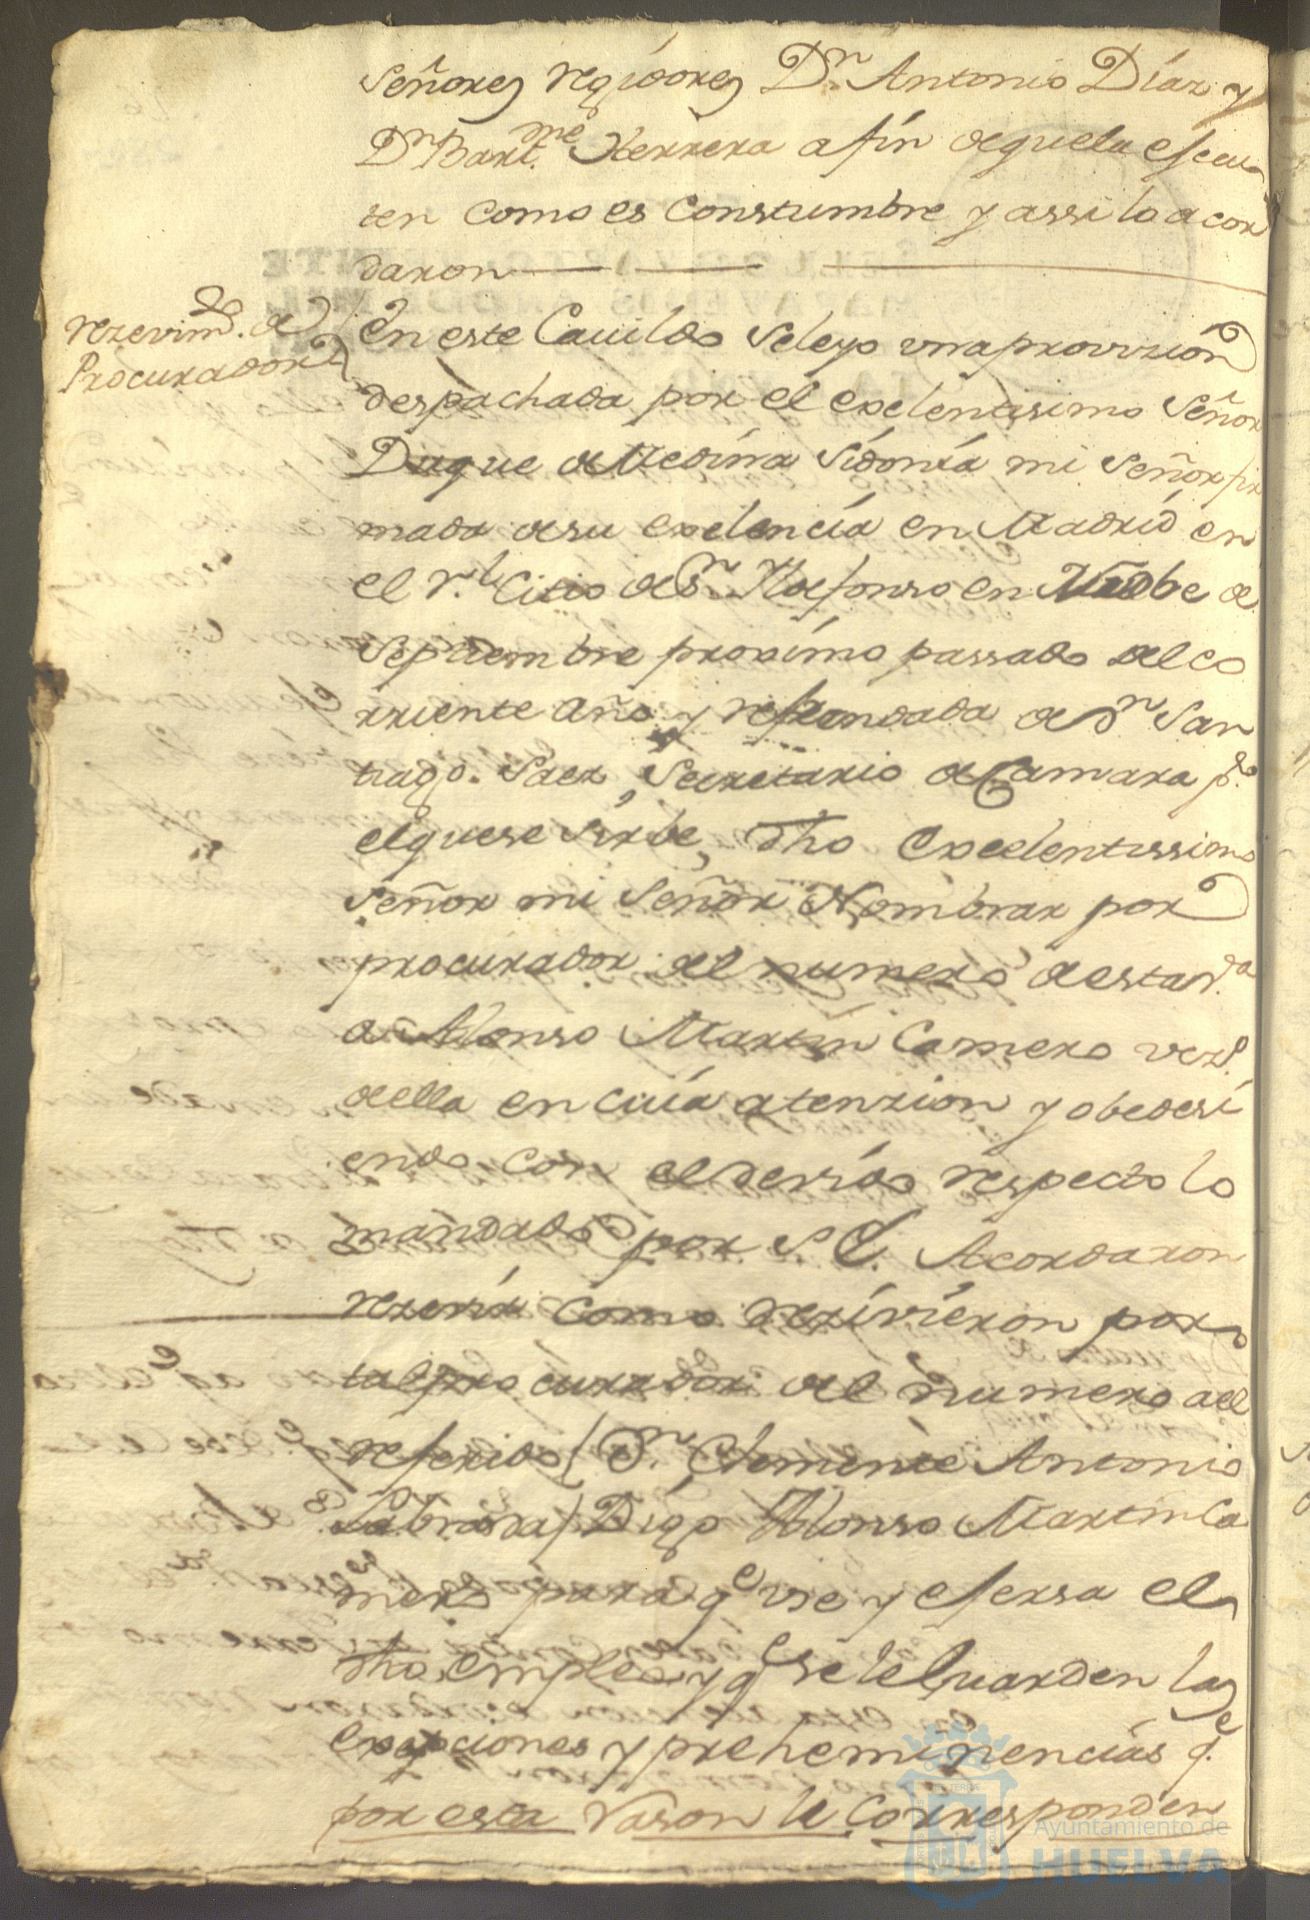 señores regidores Dn. Antonio Díaz y
Dn Bart.me Herrera a fín de que la escu
ten como es constumbre y assi lo acor
daron
rezevimdo. de
Procurador
En este Cauildo se leyo vna provizion
despachada por el exelentisimo Señor
Duque de Medína Sidonía mi Señor fir
mada de su exelencía en Madrid en
el rl. Citio de Sn Ildefonso en de
Septiembre proximo passado del co
rriente año y refrendada de Dn San
tiago Saez Secretario de Camara pr.
el que se sirbe dho Excelentissimo
Señor mi Señor Nombrar por
procurador del numero de esta va.
a Alonso Martín Camero vezo.
de ella en cuía atenzion y obedesi
endo con el devido respecto lo
mandado por S. E. Acordaron
rezevir como rezivieron por
tal procurador del numero a el
referido / Dn. Clemente Antonio
Labrada / Digo Alonso Martin Ca
mero para qe vse y esersa el
dho empleo y qe se le Guarden las
exepciones y preheminencías qe.
por esta rason le corresponden
Ayuntamiento de
HUELVA